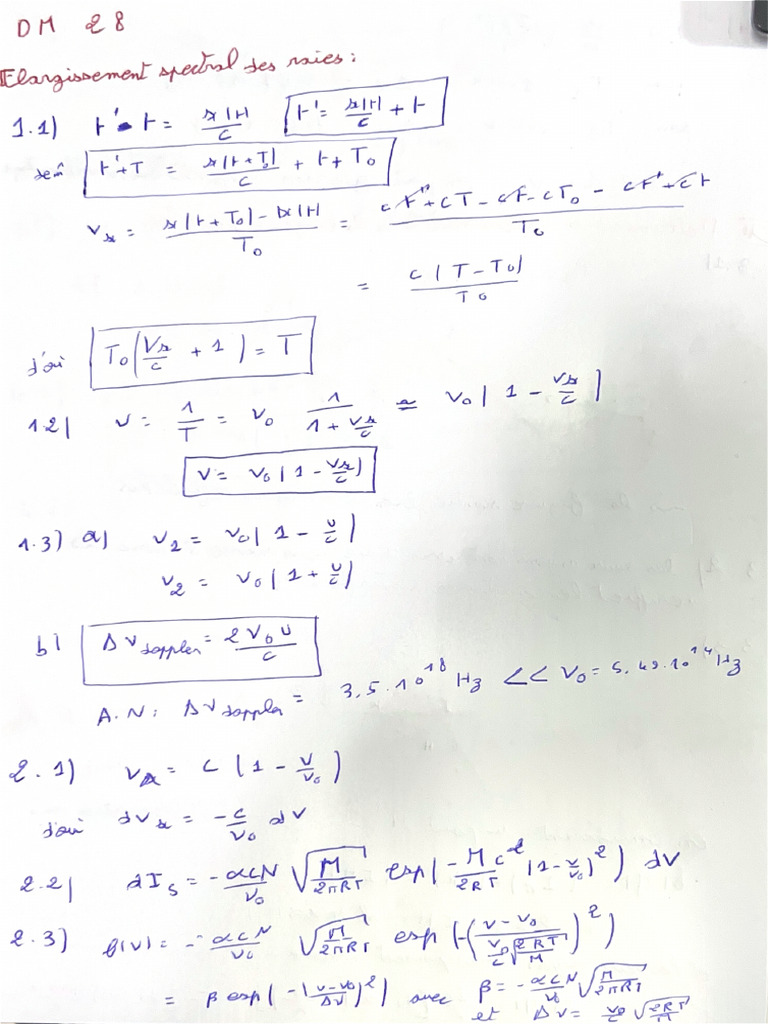 DM 28
Elargissement spectral des raies :
1.1) t' - t = x(t)/c   t' = x(t)/c + t
de m̂ t' + T = x(t + T₀)/c + t + T₀
vₓ = (x(t + T₀) - x(t))/T₀ = (ct' + cT - ct - cT₀ - ct' + ct)/T₀
= c(T - T₀)/T₀
d'où T₀(vₓ/c + 1) = T
1.2) ν = 1/T = ν₀ 1/(1 + vₓ/c) ≃ ν₀(1 - vₓ/c)
ν = ν₀(1 - vₓ/c)
1.3) a) ν₁ = ν₀(1 - u/c)
ν₂ = ν₀(1 + u/c)
b) Δν doppler = 2ν₀u/c
A.N : Δν doppler = 3,5.10¹⁸ Hz << ν₀ = 5,49.10¹⁴ Hz
2.1) vₓ = c(1 - ν/ν₀)
d'où dvₓ = -c/ν₀ dν
2.2) dIₛ = -αcN/ν₀ √(M/2πRT) exp(-Mc²/2RT (1 - ν/ν₀)²) dν
2.3) f(ν) = -αcN/ν₀ √(M/2πRT) exp(-((ν - ν₀)/(ν₀/c √(2RT/M)))²)
= β exp(-((ν - ν₀)/Δν)²) avec β = -αcN/ν₀ √(M/2πRT)
et Δν = ν₀/c √(2RT/M)